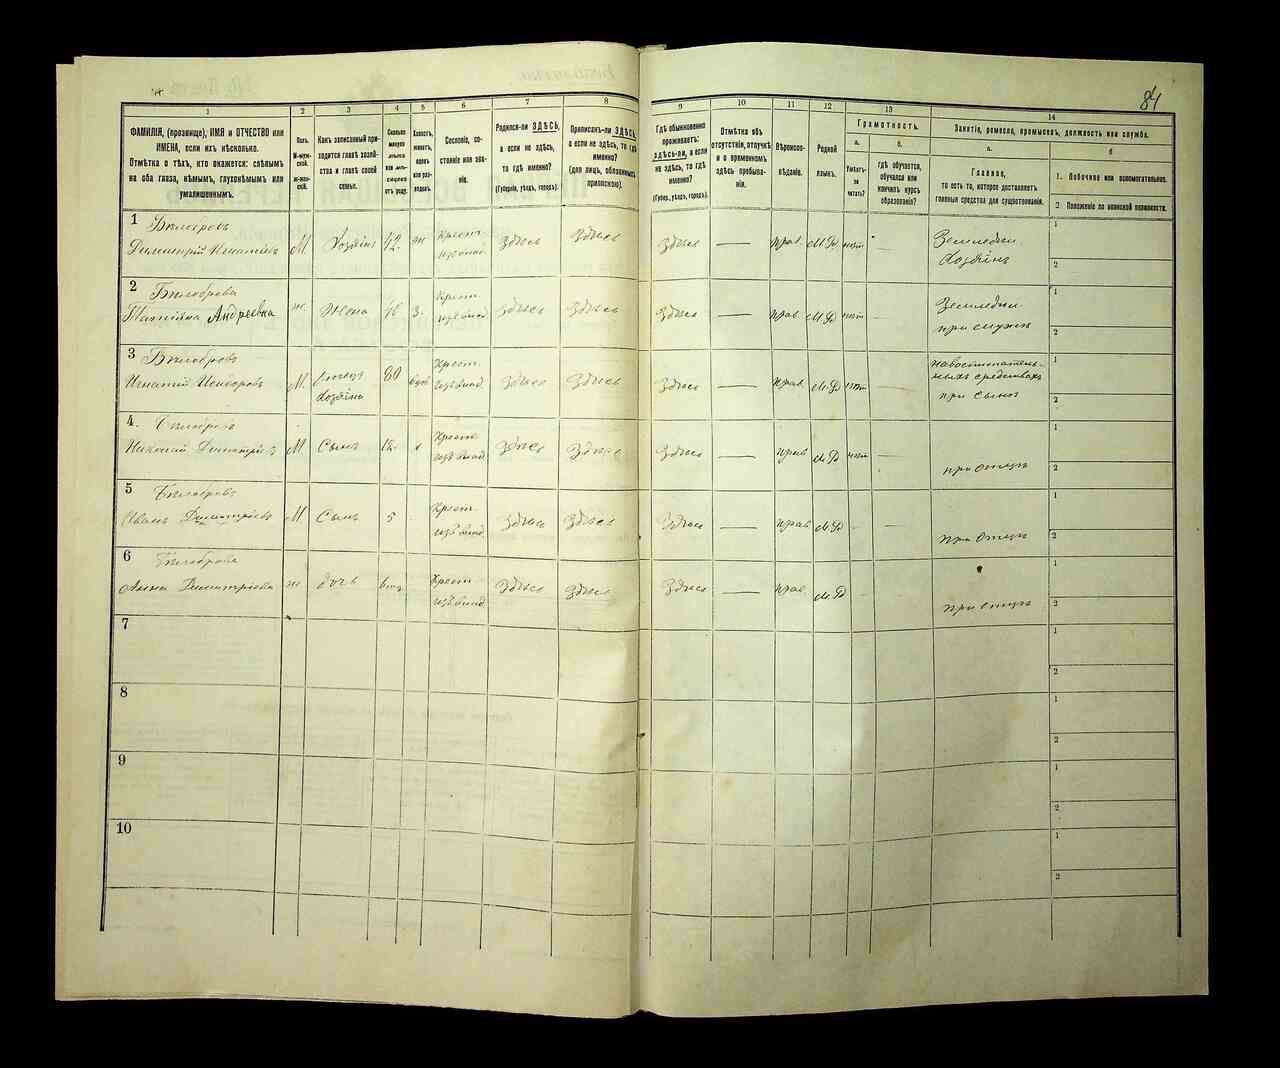 84
1
2
3
4
5
6
7
8
9
10
11
12
13
14
ФАМИЛІЯ, (прозвище), ИМЯ и ОТЧЕСТВО или
ИМЕНА, если ихъ нѣсколько.
Отмѣтка о тѣхъ, кто окажется: слѣпымъ
на оба глаза, нѣмымъ, глухонѣмымъ или
умалишеннымъ.
Полъ.
М-муж-
ской.
Ж-жен-
скій.
Какъ записанный при-
ходится главѣ хозяй-
ства и главѣ своей
семьи.
Сколько
минуло
лѣтъ
или мѣ-
сяцевъ
отъ роду.
Холостъ,
женатъ,
вдовъ
или раз-
веденъ.
Сословіе, со-
стояніе или зва-
ніе.
Родился-ли ЗДѢСЬ,
а если не здѣсь,
то гдѣ именно?
(Губернія, уѣздъ, городъ).
Приписанъ-ли ЗДѢСЬ,
а если не здѣсь, то гдѣ
именно?
(для лицъ, обязанныхъ
припискою).
Гдѣ обыкновенно
проживаетъ:
ЗДѢСЬ-ли, а если
не здѣсь, то гдѣ
именно?
(Губер., уѣздъ, городъ).
Отмѣтка объ
отсутствіи, отлучкѣ
и о временномъ
здѣсь пребыва-
ніи.
Вѣроиспо-
вѣданіе.
Родной
языкъ.
Грамотность.
а.
Умѣетъ-
ли
читать?
б.
гдѣ обучается,
обучался или
кончилъ курсъ
образованія?
Занятіе, ремесло, промыселъ, должность или служба.
а.
Главное,
то есть то, которое доставляетъ
главныя средства для существованія.
б
1. Побочное или вспомогательное.
2 Положеніе по воинской повинности.
1 Билобровъ
Димитрій Игнатіевъ М. Хозяинъ 42 ж Крест. изъ влад. Здѣсь Здѣсь Здѣсь — прав. М.Р. нѣт — Земледѣл. Хозяинъ 1 2
2 Билоброва
Татіяна Андреевна ж. Жена 46 з. Крест. изъ влад. Здѣсь Здѣсь Здѣсь — прав. М.Р. нѣт — Земледѣл. при мужѣ 1 2
3 Билобровъ
Игнатій Исидоровъ М. Отецъ Хозяина 80 вдов Крест. изъ влад. Здѣсь Здѣсь Здѣсь — прав. М.Р. нѣт — при сынѣ 1 2
4. Билобровъ
Николай Димитріевъ М Сынъ х Крест. изъ влад. Здѣсь Здѣсь Здѣсь — прав М.Р. нѣт — при отцѣ 1 2
5 Билобровъ
Иванъ Димитріевъ М Сынъ 5 - Крест. изъ влад. Здѣсь Здѣсь Здѣсь — прав М.Р. - — при отцѣ 1 2
6 Билоброва
Анна Димитріева ж. дочь Крест. изъ влад. Здѣсь Здѣсь Здѣсь — прав М.Р. при отцѣ 1 2
7 1 2
8 1 2
9 1 2
10 1 2